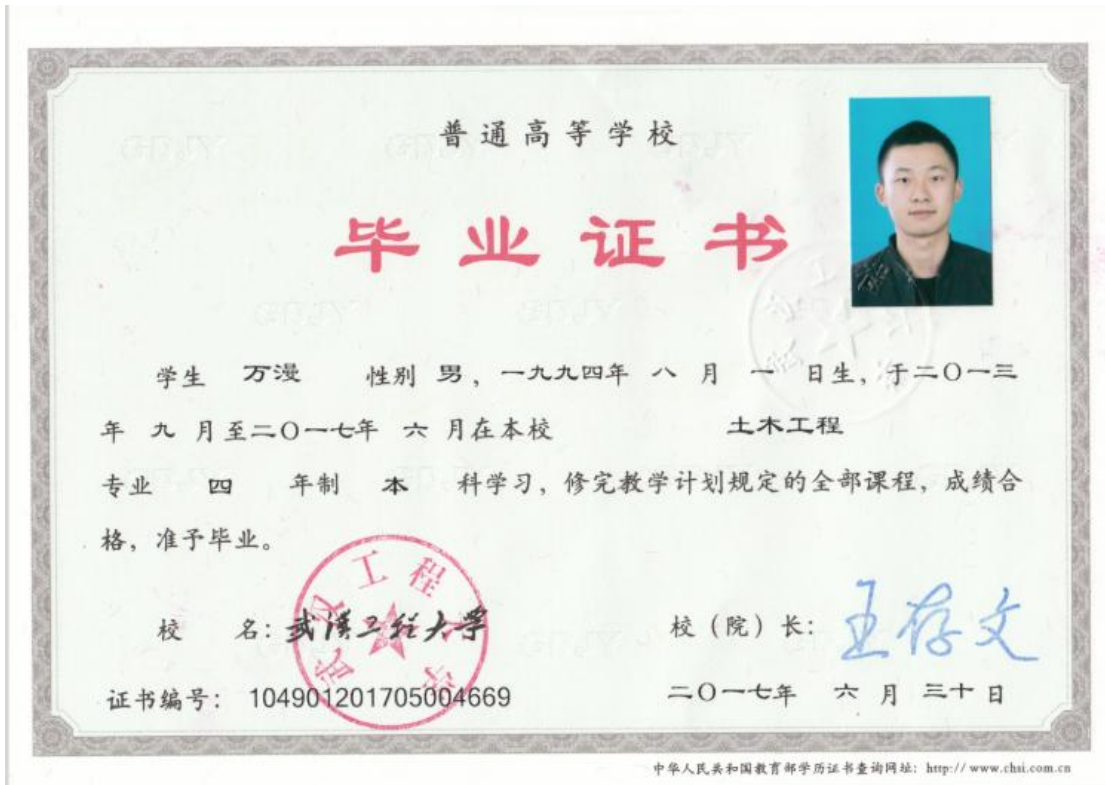 普通高等学校
毕业证书
学生 万漫 性别 男，一九九四年 八 月 一 日生，于二〇一三
年 九 月至二〇一七年 六 月在本校 土木工程
专业 四 年制 本 科学习，修完教学计划规定的全部课程，成绩合
格，准予毕业。
武汉工程大学
校 名：武汉工程大学
校（院）长：王存文
证书编号： 104901201705004669
二〇一七年 六 月 三十日
中华人民共和国教育部学历证书查询网址：http://www.chsi.com.cn